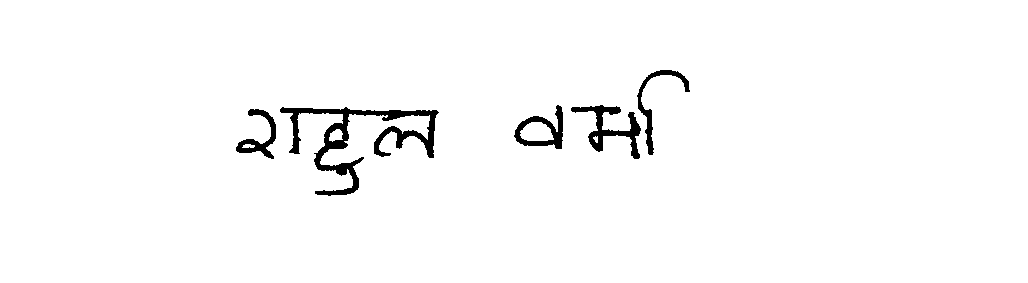 राहुल वर्मा